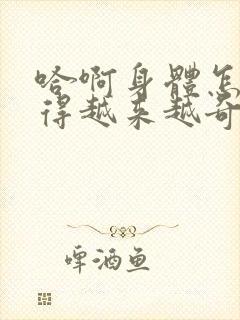 哈啊身體怎
得越来越奇
啤酒鱼